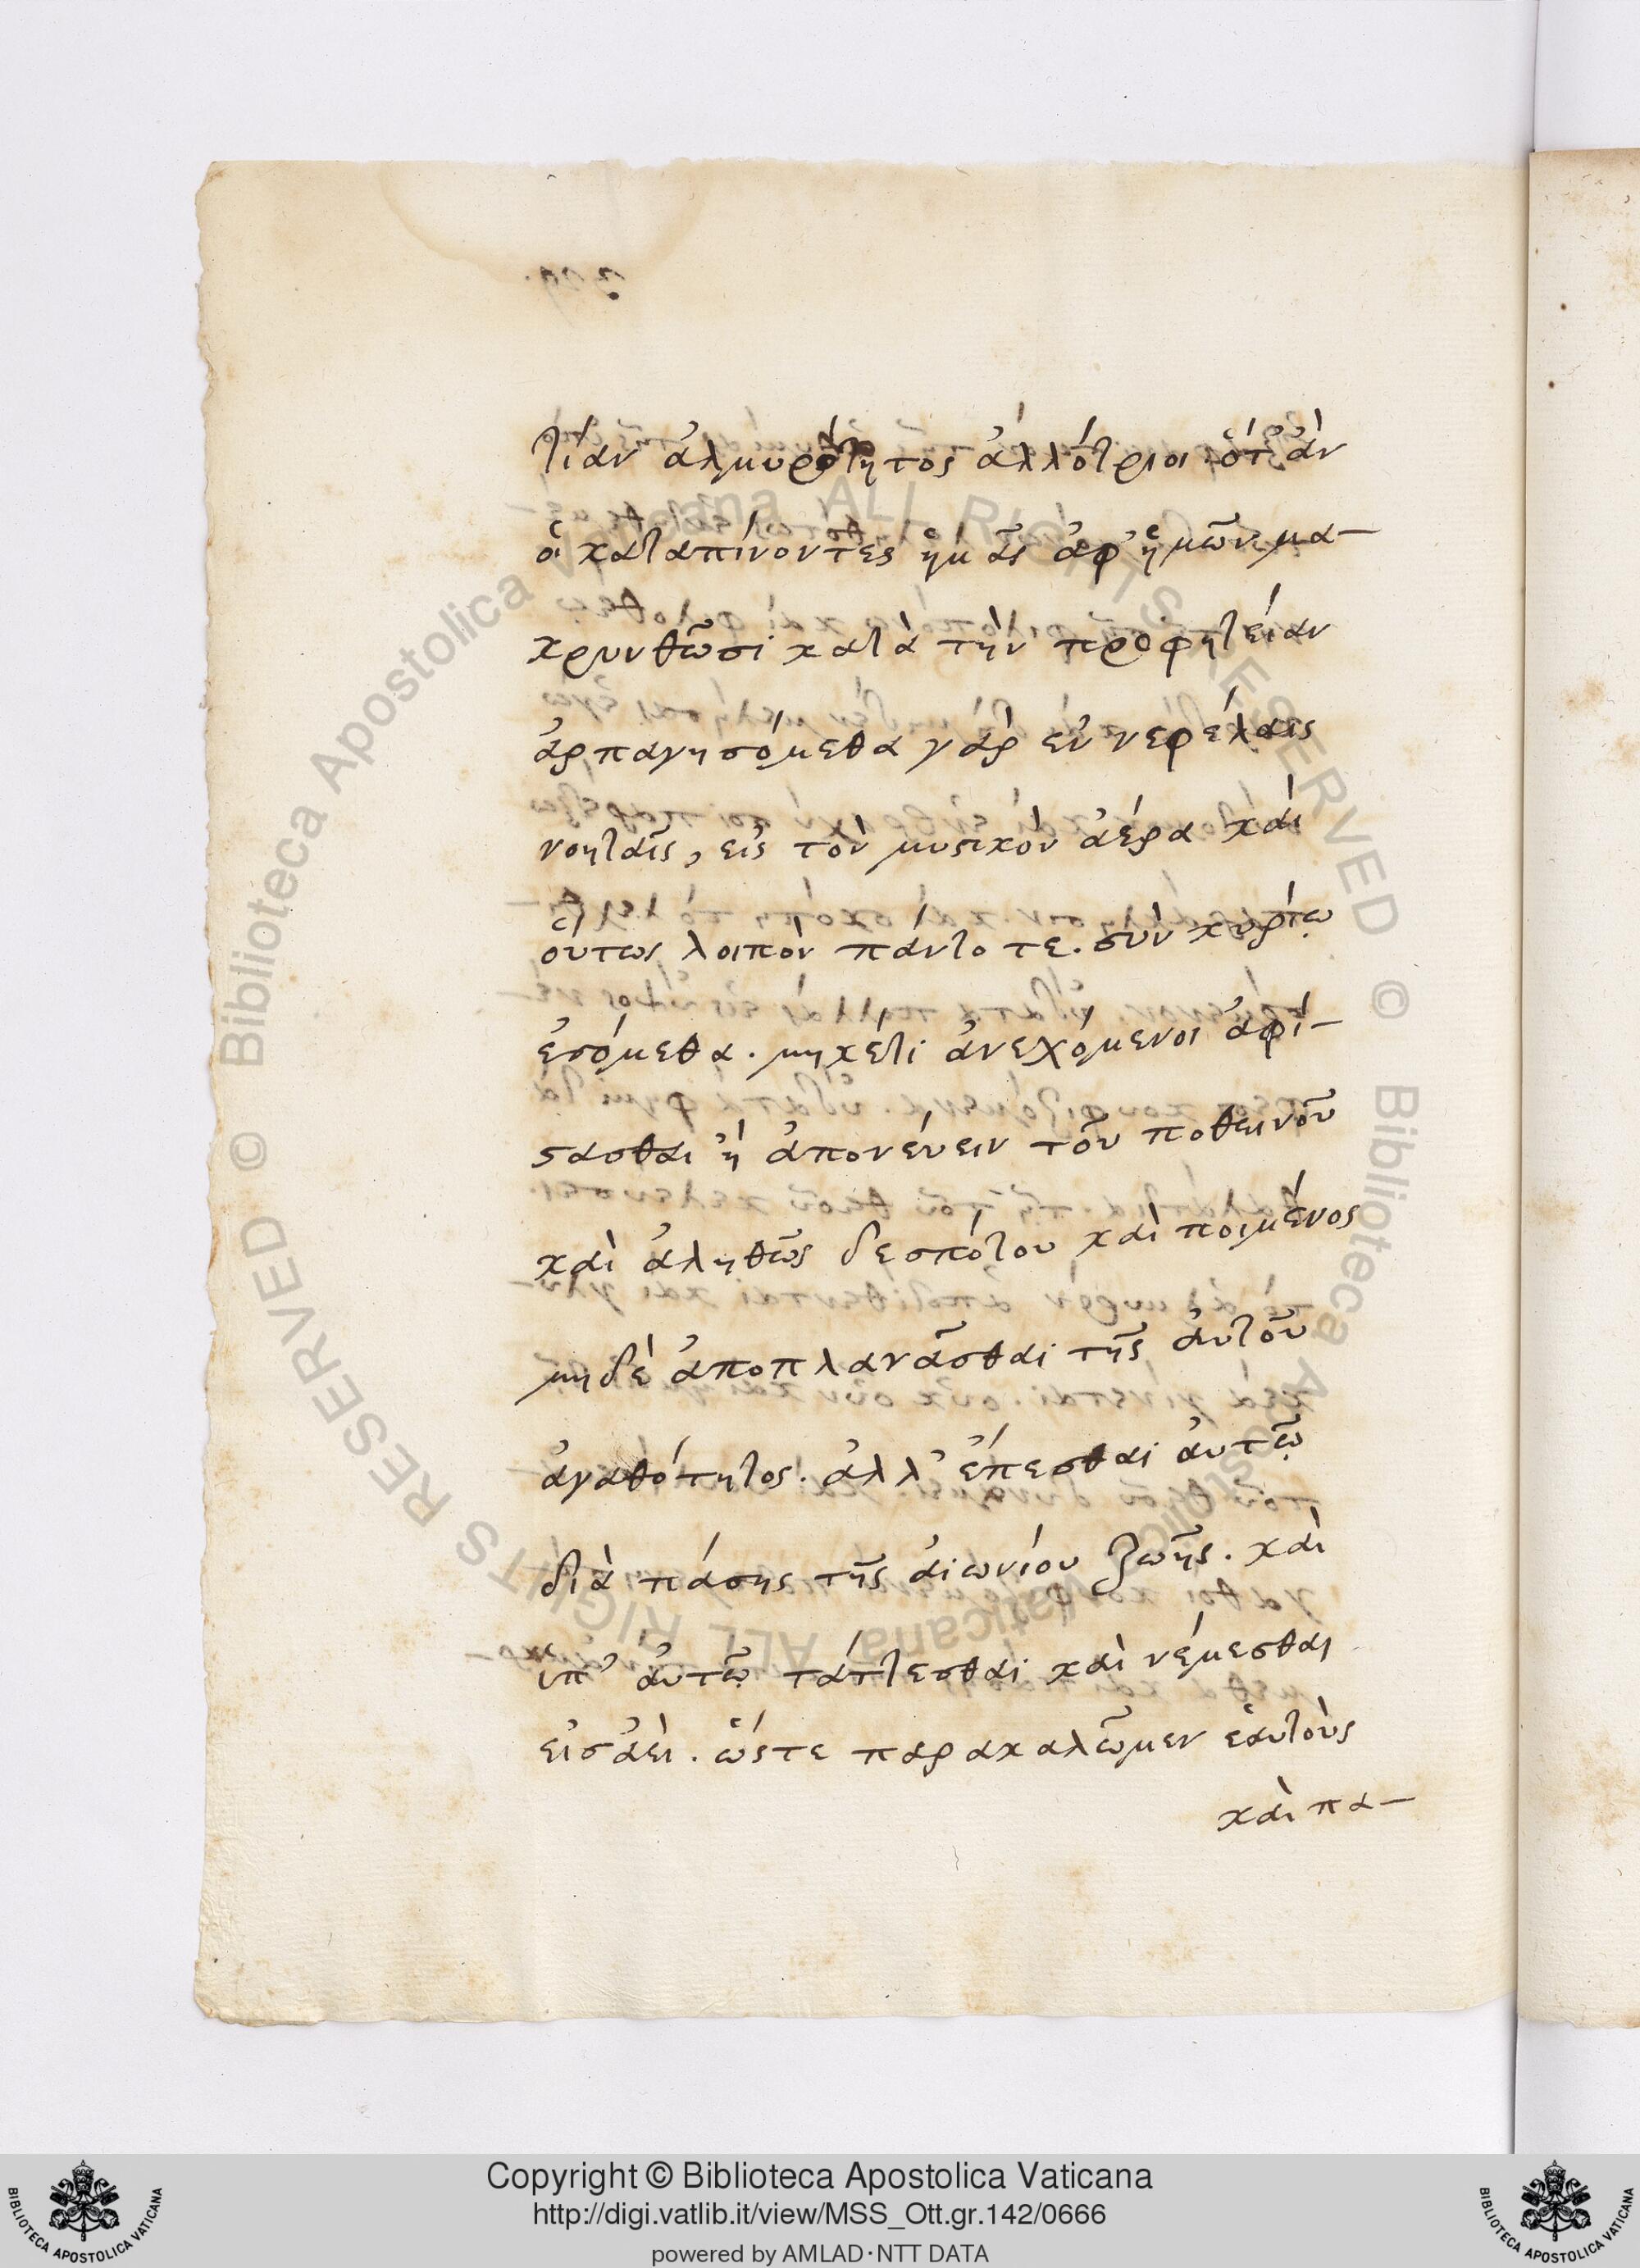 τίαν ἁλμυρότητος ἀλλότριοι. ὅτ' ἂν
οἱ καταπίνοντες ἡμᾶς ἀφ' ἡμῶν μα-
κρυνθῶσι κατὰ τὴν προφητείαν
ἁρπαγησόμεθα γὰρ ἐν νεφέλαις
νοηταῖς, εἰς τὸν μυστικὸν ἀέρα καὶ
οὕτως λοιπὸν πάντοτε. σὺν κυρίῳ
ἐσόμεθα. μηκέτι ἀνεχόμενοι ἀφί-
στασθαι ἢ ἀπονεύειν τοῦ ποθεινοῦ
καὶ ἀληθῶς δεσπότου καὶ ποιμένος
μηδὲ ἀποπλανᾶσθαι τῆς αὐτοῦ
ἀγαθότητος. ἀλλ' ἕπεσθαι αὐτῷ
διὰ πάσης τῆς αἰωνίου ζωῆς. καὶ
ὑπ' αὐτῷ τάττεσθαι καὶ νέμεσθαι
εἰσάει. ὥστε παρακαλῶμεν ἑαυτοὺς
καὶ πα-
Copyright © Biblioteca Apostolica Vaticana
http://digi.vatlib.it/view/MSS_Ott.gr.142/0666
powered by AMLAD·NTT DATA
BIBLIOTECA APOSTOLICA VATICANA
BIBLIOTECA APOSTOLICA VATICANA
© Biblioteca Apostolica Vaticana ALL RIGHTS RESERVED
© Biblioteca Apostolica Vaticana ALL RIGHTS RESERVED